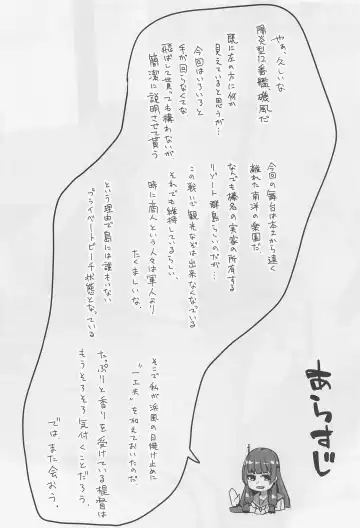 あらすじ
やぁ、久しいな
陽炎型12番艦磯風だ
既に左の方に何か
見えていると思うが…
今回はいろいろと
手が回らなくてな
飛ばして貰っても構わないが
簡潔に説明させて貰う
今回の舞台は本土から遠く
離れた南洋の楽園だ
なんでも榛名の実家の所有する
リゾート群島らしいのだが…
この戦いで観光などは出来なくなっている
それでも維持しているらしい。
時に商人という人々は軍人より
たくましいな。
という理由で島には誰もいない
プライベートビーチ状態となっている
そこで私が浜風の日焼け止めに
"一工夫"を加えておいたのだ。
たっぷりと香りを受けている提督は
もうそろそろ気付くことだろう。
では、また会おう。